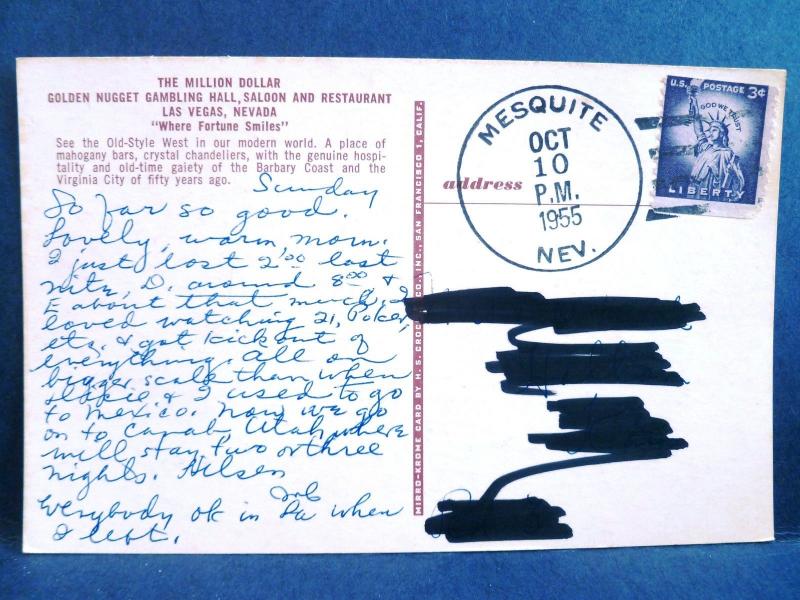 THE MILLION DOLLAR
GOLDEN NUGGET GAMBLING HALL, SALOON AND RESTAURANT
LAS VEGAS, NEVADA
"Where Fortune Smiles"
See the Old-Style West in our modern world. A place of
mahogany bars, crystal chandeliers, with the genuine hospi-
tality and old-time gaiety of the Barbary Coast and the
Virginia City of fifty years ago.
Sunday
So far so good.
Lovely, warm, morn.
I just lost 2.00 last
nite, D. around 8.00 &
E about that much. I
loved watching 21, Poker,
etc. & got kick out of
everything. All on
bigger scale than when
& I used to go
to Mexico. Now we go
on to Utah where
will stay two or three
nights.
Everybody ok in Pa when
I left.
MIRRO-KROME CARD BY H. S. CROCKER CO., INC., SAN FRANCISCO 1, CALIF.
address
MESQUITE
OCT
10
P.M.
1955
NEV.
U.S. POSTAGE 3¢
IN GOD WE TRUST
LIBERTY